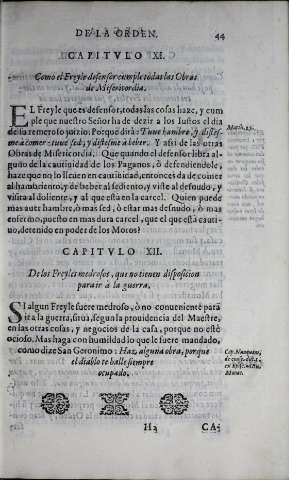 DE LA ORDEN. 44
CAPITVLO XI.
Como el Freyle defensor cumple todas las Obras
de Misericordia.
EL Freyle que es defensor, todas las cosas haze, y cum
ple que nuestro Señor ha de dezir a los Iustos el dia
de su temeroso juizio. Porque dirà: Tuue hambre, y distes-
me à comer: tuue sed, y distesme à beber. Y assi de las otras
Obras de Misericordia. Que quando el defensor libra al-
guno de la cautiuidad de los Paganos, ò defendiendole,
haze que no lo lleuen en cautiuidad, entonces da de comer
al hambriento, y de beber al sediento, y viste al desnudo, y
visita al doliente, y al que està en la carcel. Quien puede
mas auer hambre, ò mas sed, ò estar mas desnudo, ò mas
enfermo, puesto en mas dura carcel, que el que està cauti-
uo, detenido en poder de los Moros?
Math. 25.
CAPITVLO XII.
De los Freyles medrosos, que no tienen disposicion
para ir à la guerra.
SI algun Freyle fuere medroso, ò no conueniente para
ir à la guerra, sirua, segun la prouidencia del Maestre,
en las otras cosas, y negocios de la casa, porque no estè
ocioso. Mas haga con humildad lo que le fuere mandado,
como dize San Geronimo: Haz alguna obra, porque
el diablo te halle siempre
ocupado.
Cap. Nunquam,
de consec. dist. 5.
H2 CA-